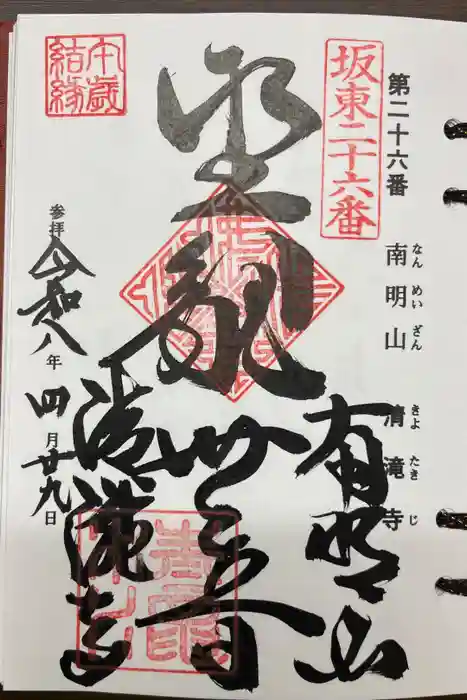 第二十六番　南明山　清滝寺
なんめいざん　きよたきじ
坂東二十六番
南明山
聖観世音
清滝寺
午歳
結縁
参拝 令和八年四月廿九日